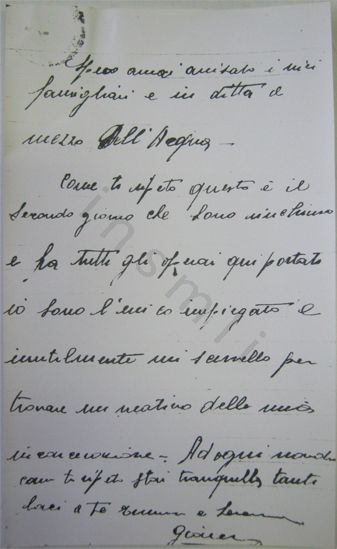 Spero avrai avvisato i miei
famigliari e in ditta a
mezzo Dell'Acqua -
Come ti ripeto questo è il
secondo giorno che sono rinchiuso
e fra tutti gli operai qui portati
io sono l'unico impiegato e
inutilmente mi scervello per
trovare un motivo della mia
incarcerazione - Ad ogni modo
come ti ripeto stai tranquilla tanti
baci a te
insmli